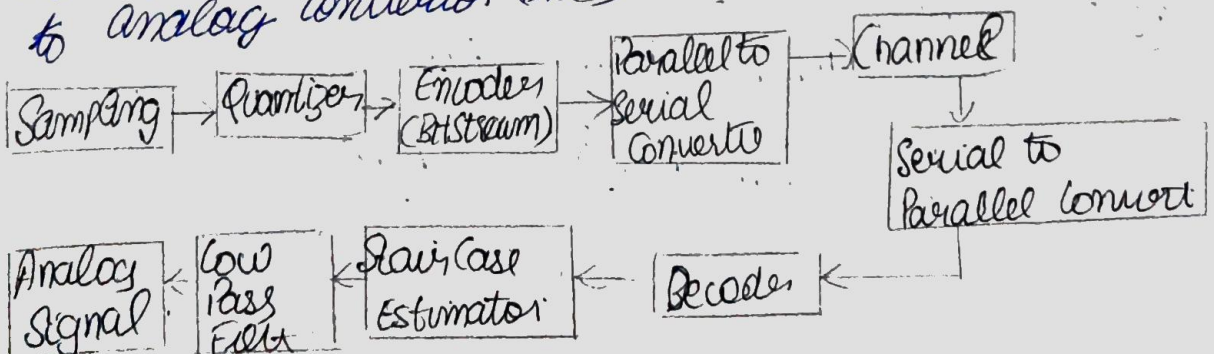 to analog
Sampling
Quantizer
Encoder
(BitStream)
Parallel to
Serial
Converto
Channel
Serial to
Parallel Convert
Decoder
StairCase
Estimator
Low
Pass
Filt
Analog
Signal